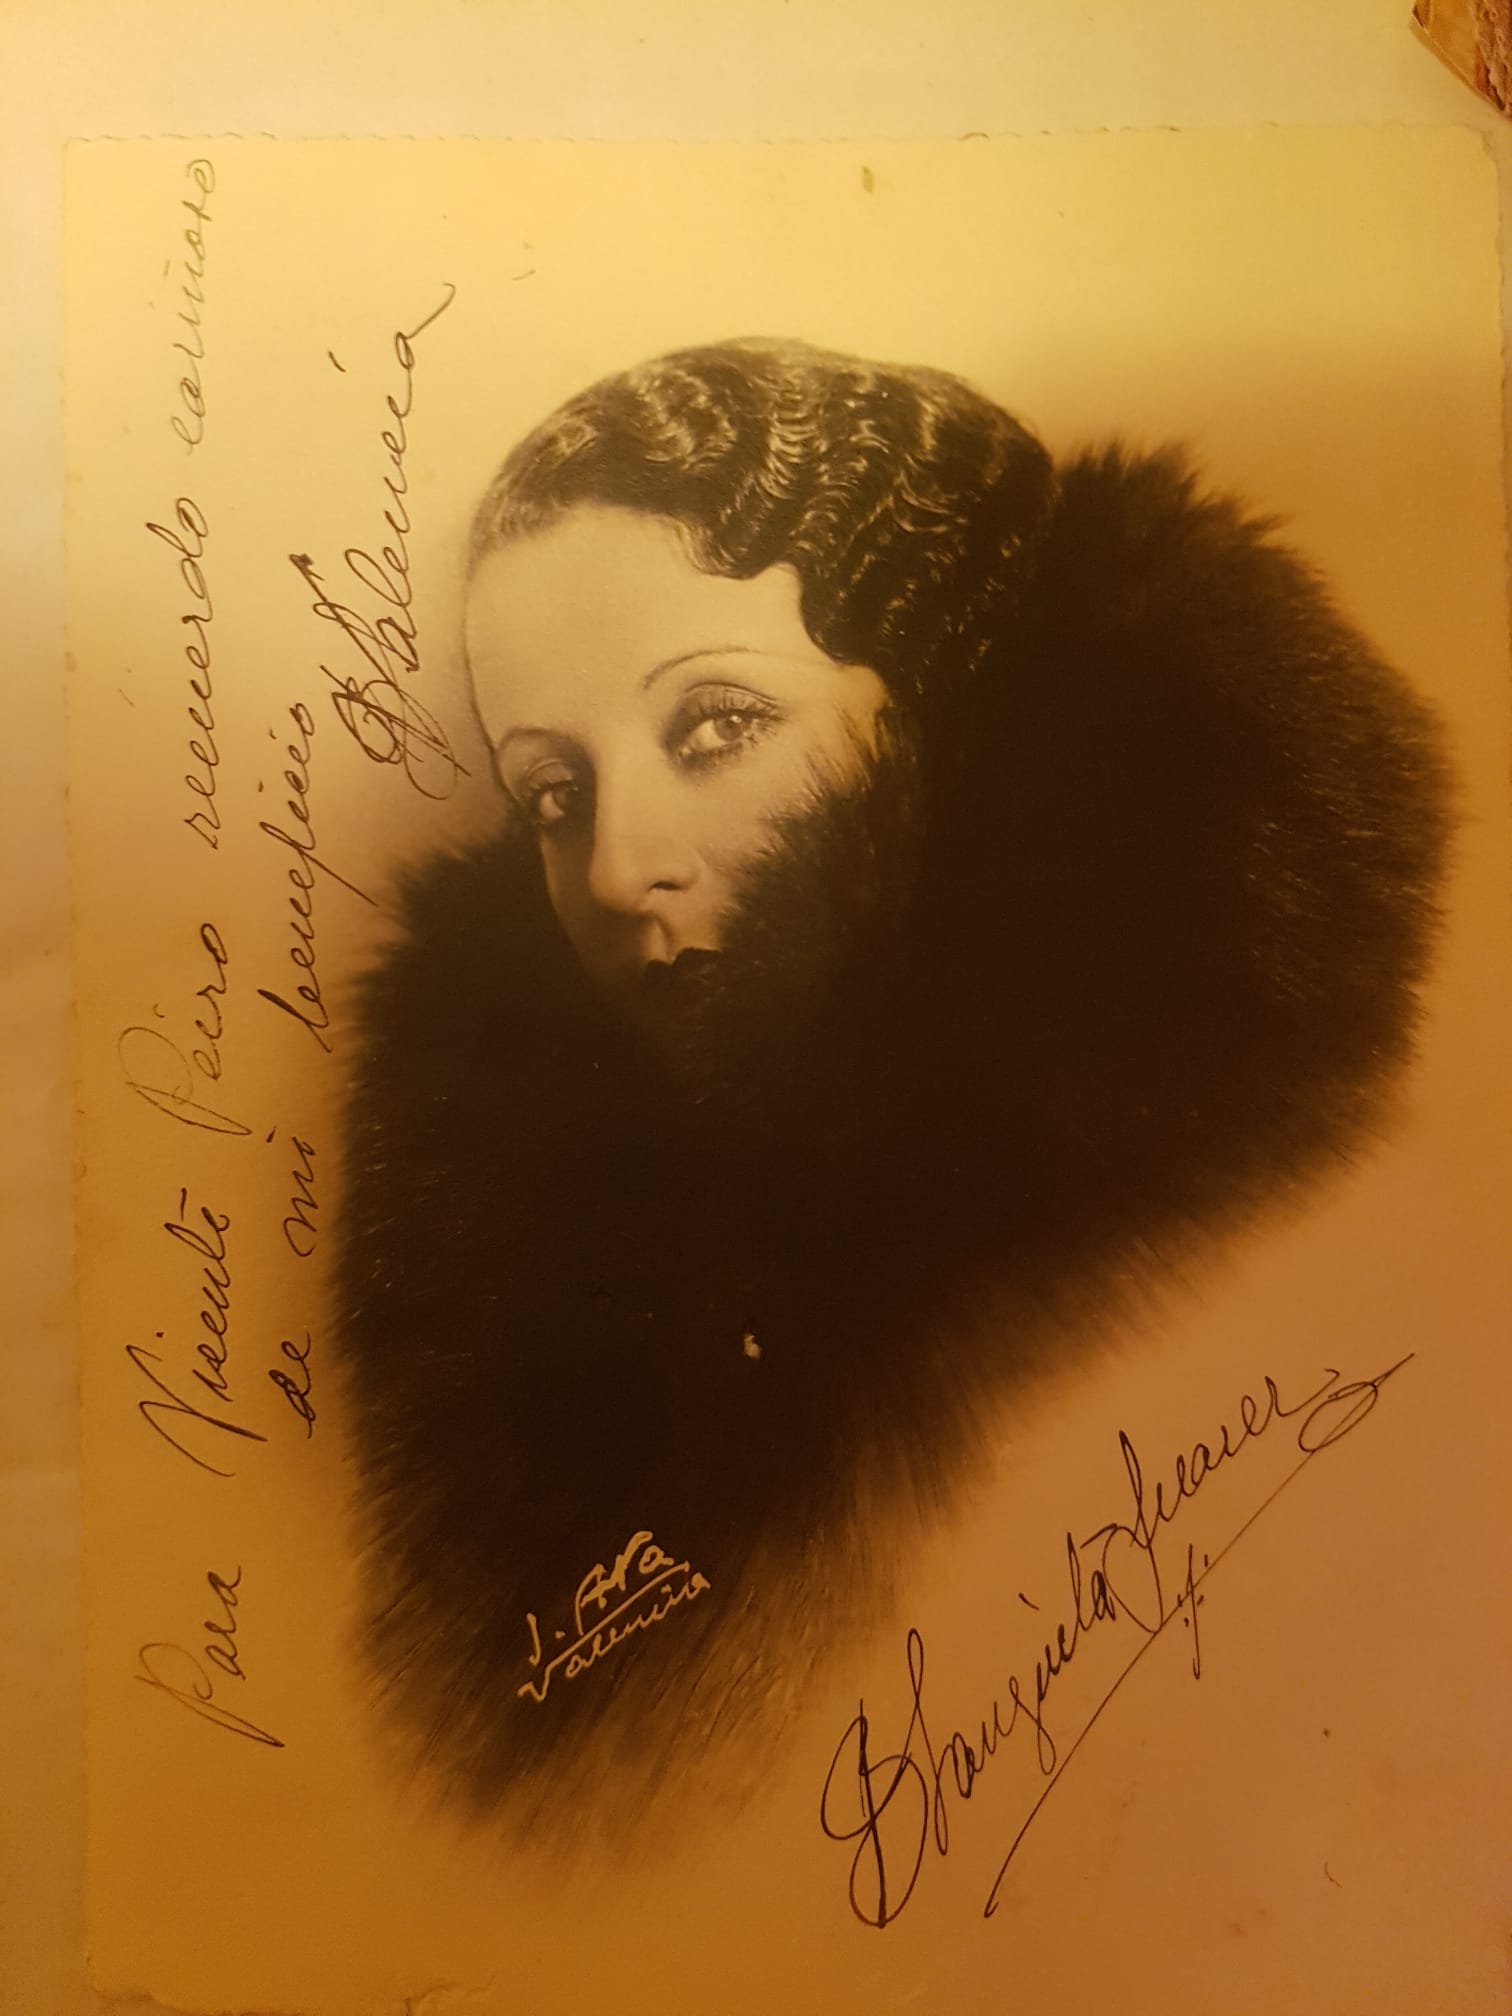 Para Vicente Peiro recuerdo cariñoso
de mi beneficio
Valencia
J. Ara
Valencia
Blanquita Suarez